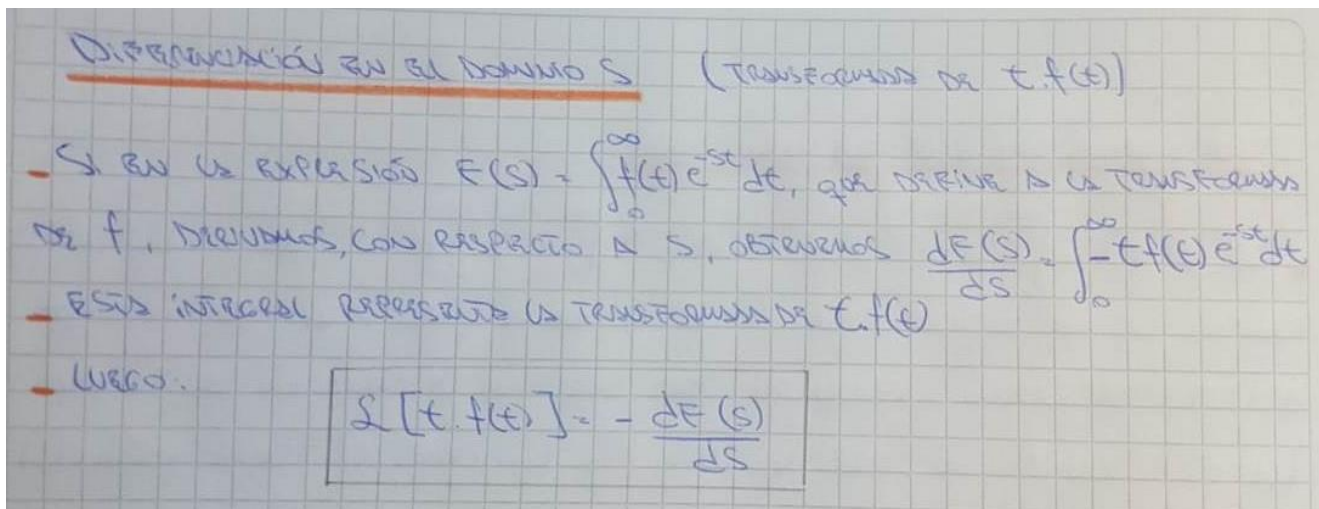 DIFERENCIACIÓN EN EL DOMINIO S (TRANSFORMADA DE t.f(t))
- SI EN LA EXPRESIÓN F(S) = ∫₀^∞ f(t) e^-st dt, QUE DEFINE A LA TRANSFORMADA
DE f, DERIVAMOS, CON RESPECTO A S, OBTENEMOS dF(S)/dS = ∫₀^∞ -t f(t) e^-st dt
- ESTA INTEGRAL REPRESENTA LA TRANSFORMADA DE t.f(t)
- LUEGO.
ℒ [t.f(t)] = - dF(S)/dS